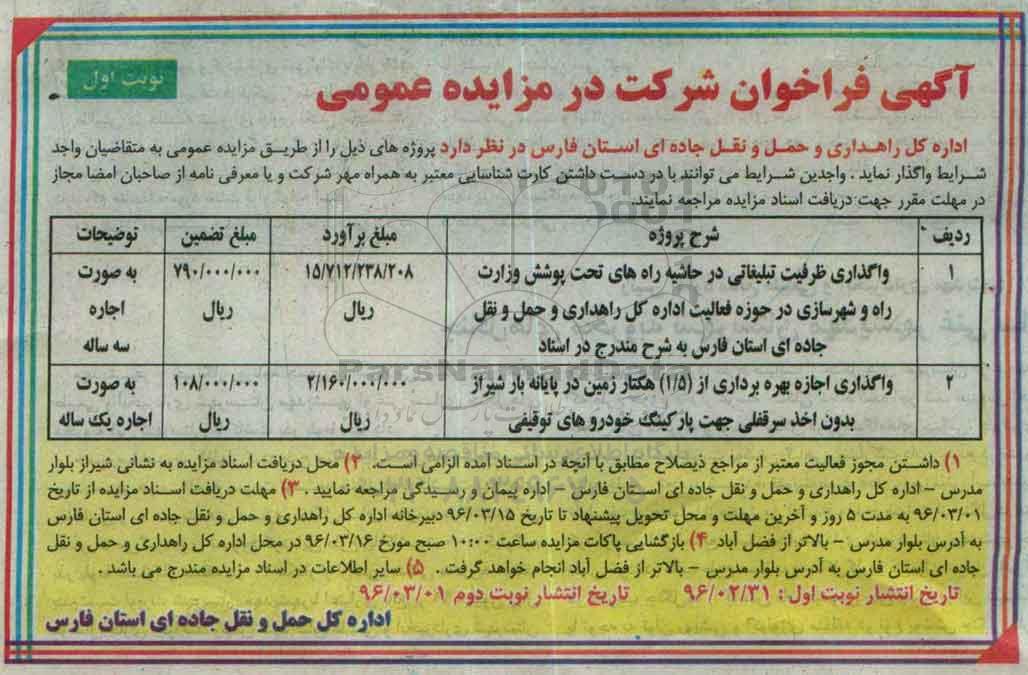 نوبت اول
آگهی فراخوان شرکت در مزایده عمومی
اداره کل راهداری و حمل و نقل جاده ای استان فارس در نظر دارد پروژه های ذیل را از طریق مزایده عمومی به متقاضیان واجد
شرایط واگذار نماید . واجدین شرایط می توانند با در دست داشتن کارت شناسایی معتبر به همراه مهر شرکت و یا معرفی نامه از صاحبان امضا مجاز
در مهلت مقرر جهت دریافت اسناد مزایده مراجعه نمایند.
ردیف شرح پروژه مبلغ برآورد مبلغ تضمین توضیحات
۱ واگذاری ظرفیت تبلیغاتی در حاشیه راه های تحت پوشش وزارت ۱۵/۷۱۲/۲۳۸/۲۰۸ ۷۹۰/۰۰۰/۰۰۰ به صورت
راه و شهرسازی در حوزه فعالیت اداره کل راهداری و حمل و نقل ریال ریال اجاره
جاده ای استان فارس به شرح مندرج در اسناد سه ساله
۲ واگذاری اجازه بهره برداری از (۱/۵) هکتار زمین در پایانه بار شیراز ۲/۱۶۰/۰۰۰/۰۰۰ ۱۰۸/۰۰۰/۰۰۰ به صورت
بدون اخذ سرقفلی جهت پارکینگ خودرو های توقیفی ریال ریال اجاره یک ساله
۱) داشتن مجوز فعالیت معتبر از مراجع ذیصلاح مطابق با آنچه در اسناد آمده الزامی است. ۲) محل دریافت اسناد مزایده به نشانی شیراز بلوار
مدرس – اداره کل راهداری و حمل و نقل جاده ای استان فارس – اداره پیمان و رسیدگی مراجعه نمایید . ۳) مهلت دریافت اسناد مزایده از تاریخ
۹۶/۰۳/۰۱ به مدت ۵ روز و آخرین مهلت و محل تحویل پیشنهاد تا تاریخ ۹۶/۰۳/۱۵ دبیرخانه اداره کل راهداری و حمل و نقل جاده ای استان فارس
به آدرس بلوار مدرس – بالاتر از فضل آباد ۴) بازگشایی پاکات مزایده ساعت ۱۰:۰۰ صبح مورخ ۹۶/۰۳/۱۶ در محل اداره کل راهداری و حمل و نقل
جاده ای استان فارس به آدرس بلوار مدرس – بالاتر از فضل آباد انجام خواهد گرفت . ۵) سایر اطلاعات در اسناد مزایده مندرج می باشد .
تاریخ انتشار نوبت اول : ۹۶/۰۲/۳۱ تاریخ انتشار نوبت دوم ۹۶/۰۳/۰۱
اداره کل حمل و نقل جاده ای استان فارس
ParsNamadData